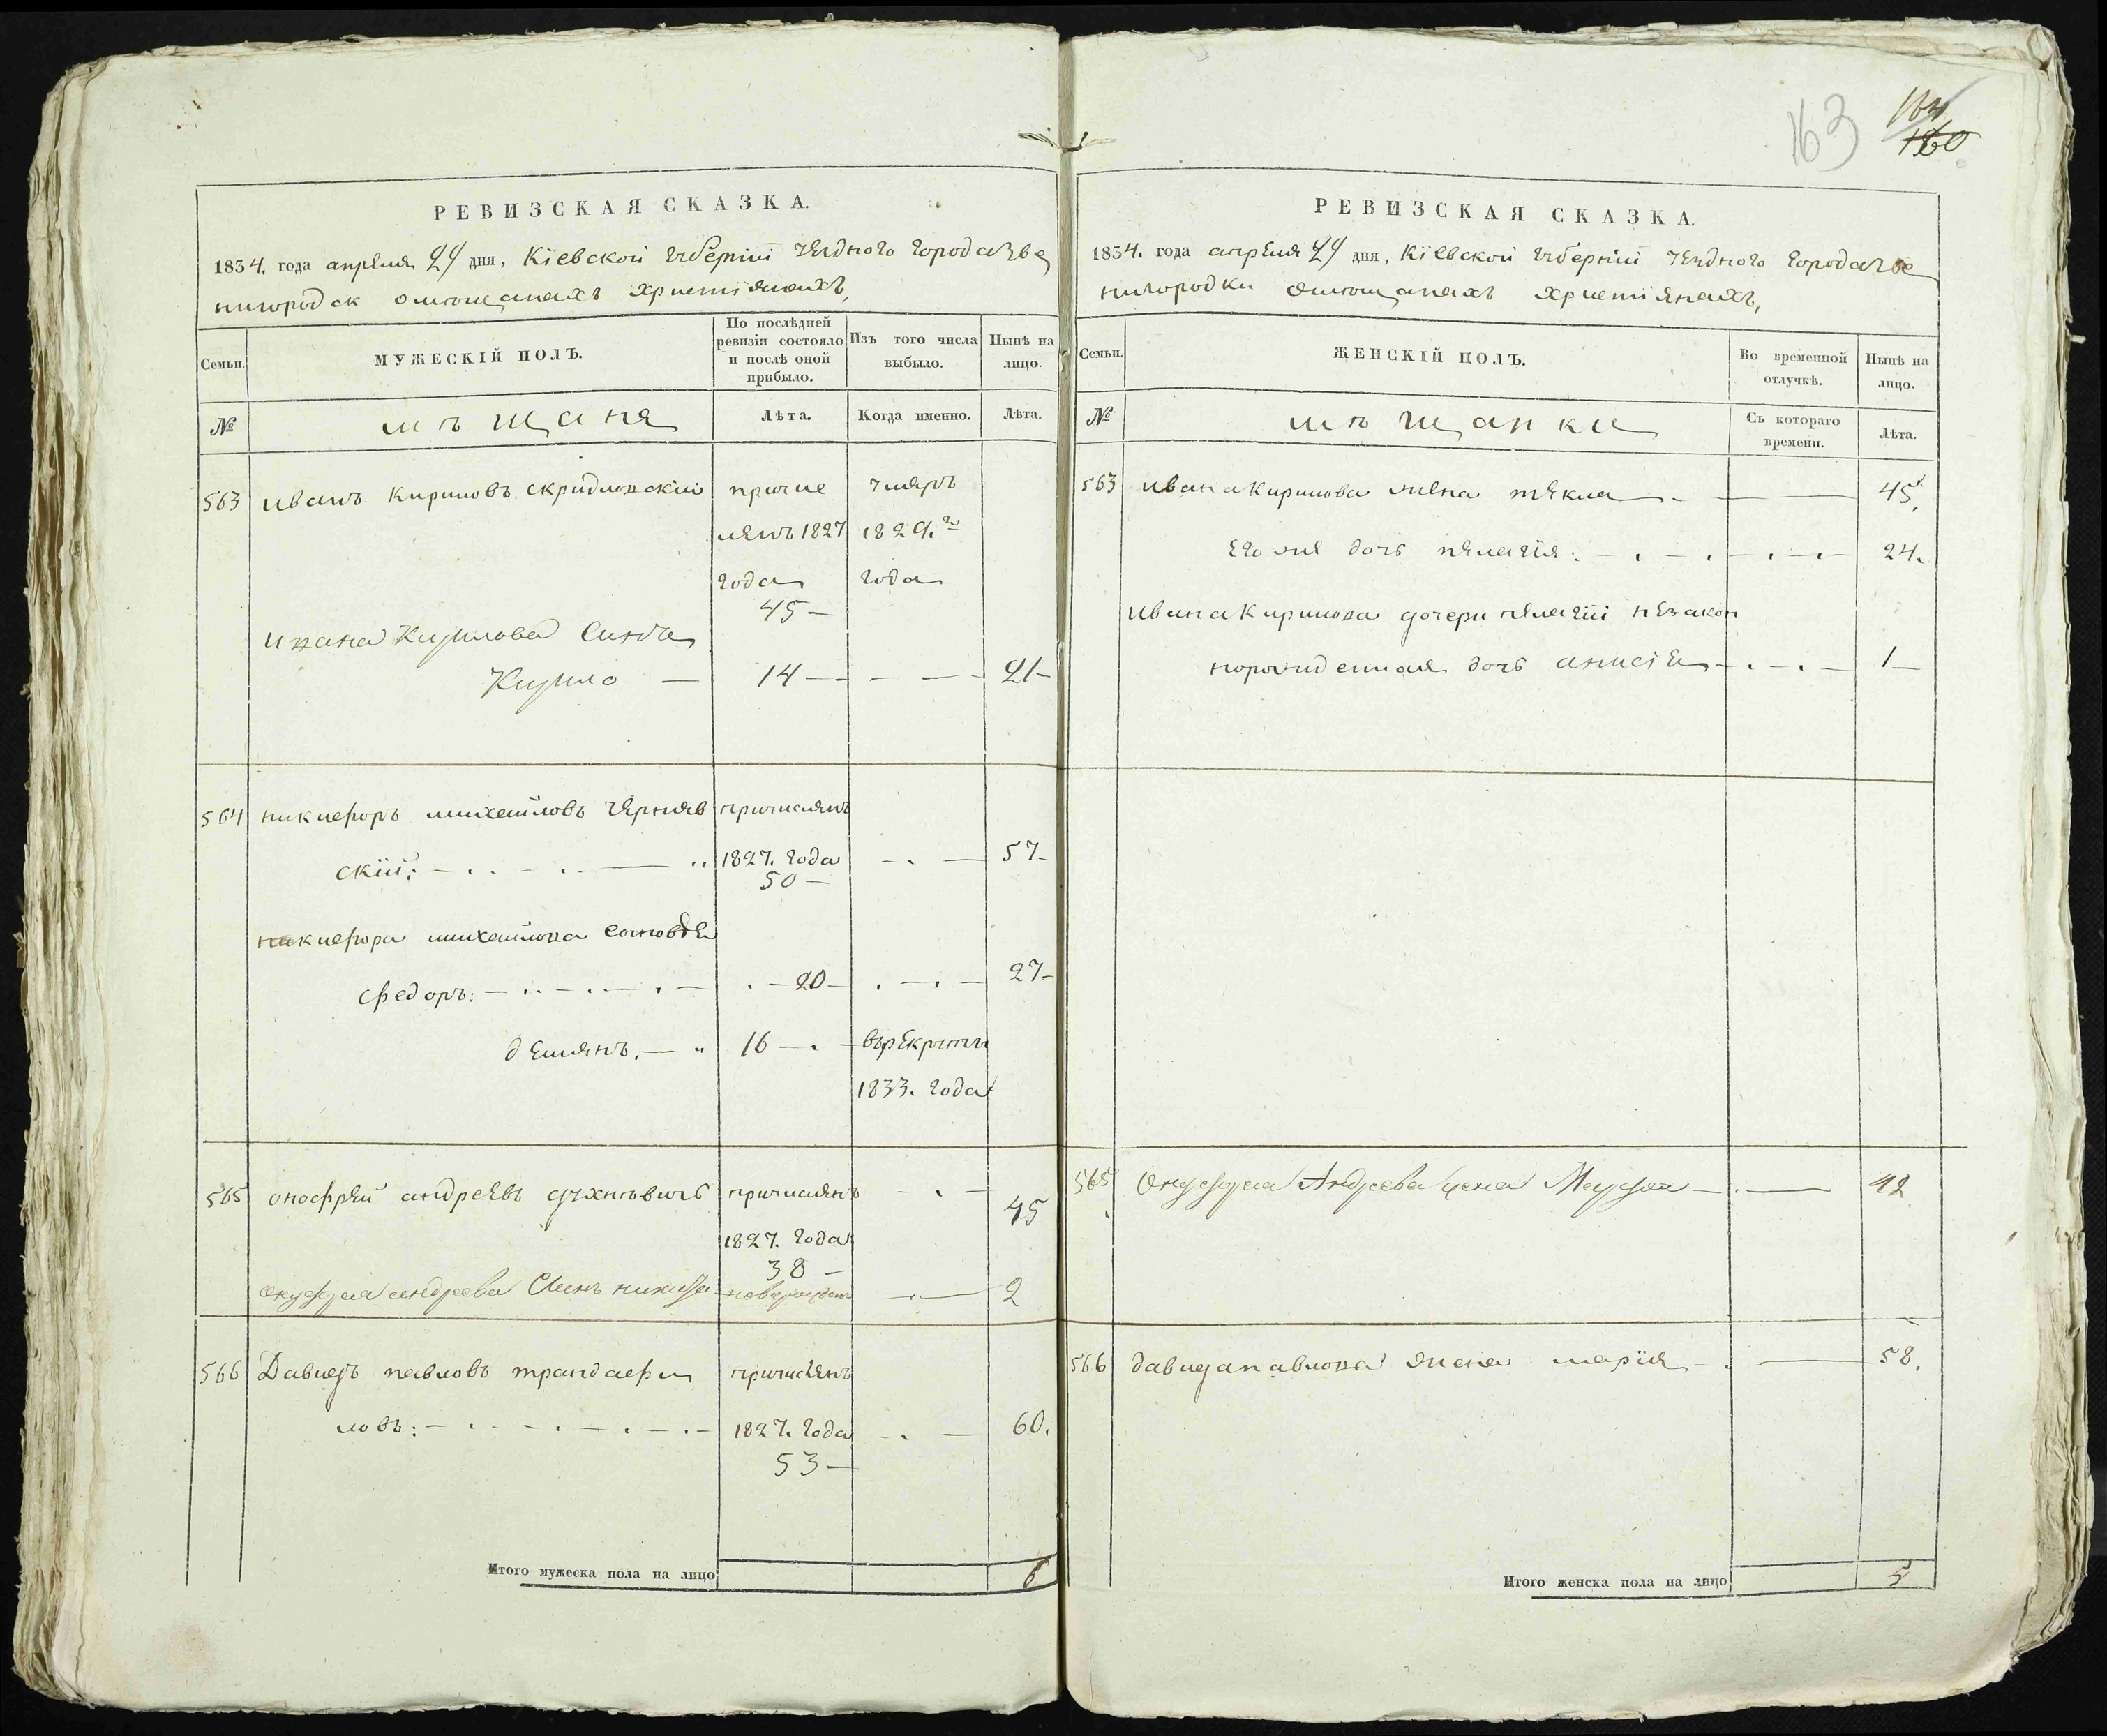 163
164
160
РЕВИЗСКАЯ СКАЗКА.
1834. года апреля 24 дня, Кіевской губерніи уездного города Зве
нигородок о мещанахъ христіянахъ,
Семьи.
МУЖЕСКІЙ ПОЛЪ.
По послѣдней ревизіи состояло и послѣ оной прибыло.
Изъ того числа выбыло.
Нынѣ на лицо.
№
мѣщаня
Лѣта.
Когда именно.
Лѣта.
563 иванъ Кириловъ скридловскій причис умеръ
лянъ 1827 1829. го
года года
45 —
ивана Кирилова Синъ
Кирило — 14 — — — 21 —
564 никифоръ михайловъ черняв причислянъ
скій: 1827. года — 57 —
50 —
никифора михайлова сыновья
федоръ: — 20 — — 27 —
демянъ. — 16 — въ рекруты
1833. года
565 онофрей андреевъ причислянъ — 45
1827. года
38 —
онуфрия андреева Синъ новорожден — 2
566 Давидъ павловъ трандафи причислянъ
ловъ: — 1827. года — 60.
53 —
Итого мужеска пола на лицо 6
РЕВИЗСКАЯ СКАЗКА.
1834. года апреля 24 дня, Кіевской губерніи уездного города Зве
нигородки о мещанахъ христіянахъ,
Семьи.
ЖЕНСКІЙ ПОЛЪ.
Во временной отлучкѣ.
Нынѣ на лицо.
№
мѣщанки
Съ котораго времени.
Лѣта.
563 ивана Кирилова жена текла — 45.
его же дочь пелагія: — 24.
ивана Кирилова дочери пелагіи незакон
норожденная дочь анисія — 1 —
565 Онуфрия Андреева жена Марфа — 42
566 давида павлова жена марія — 58.
Итого женска пола на лицо 5